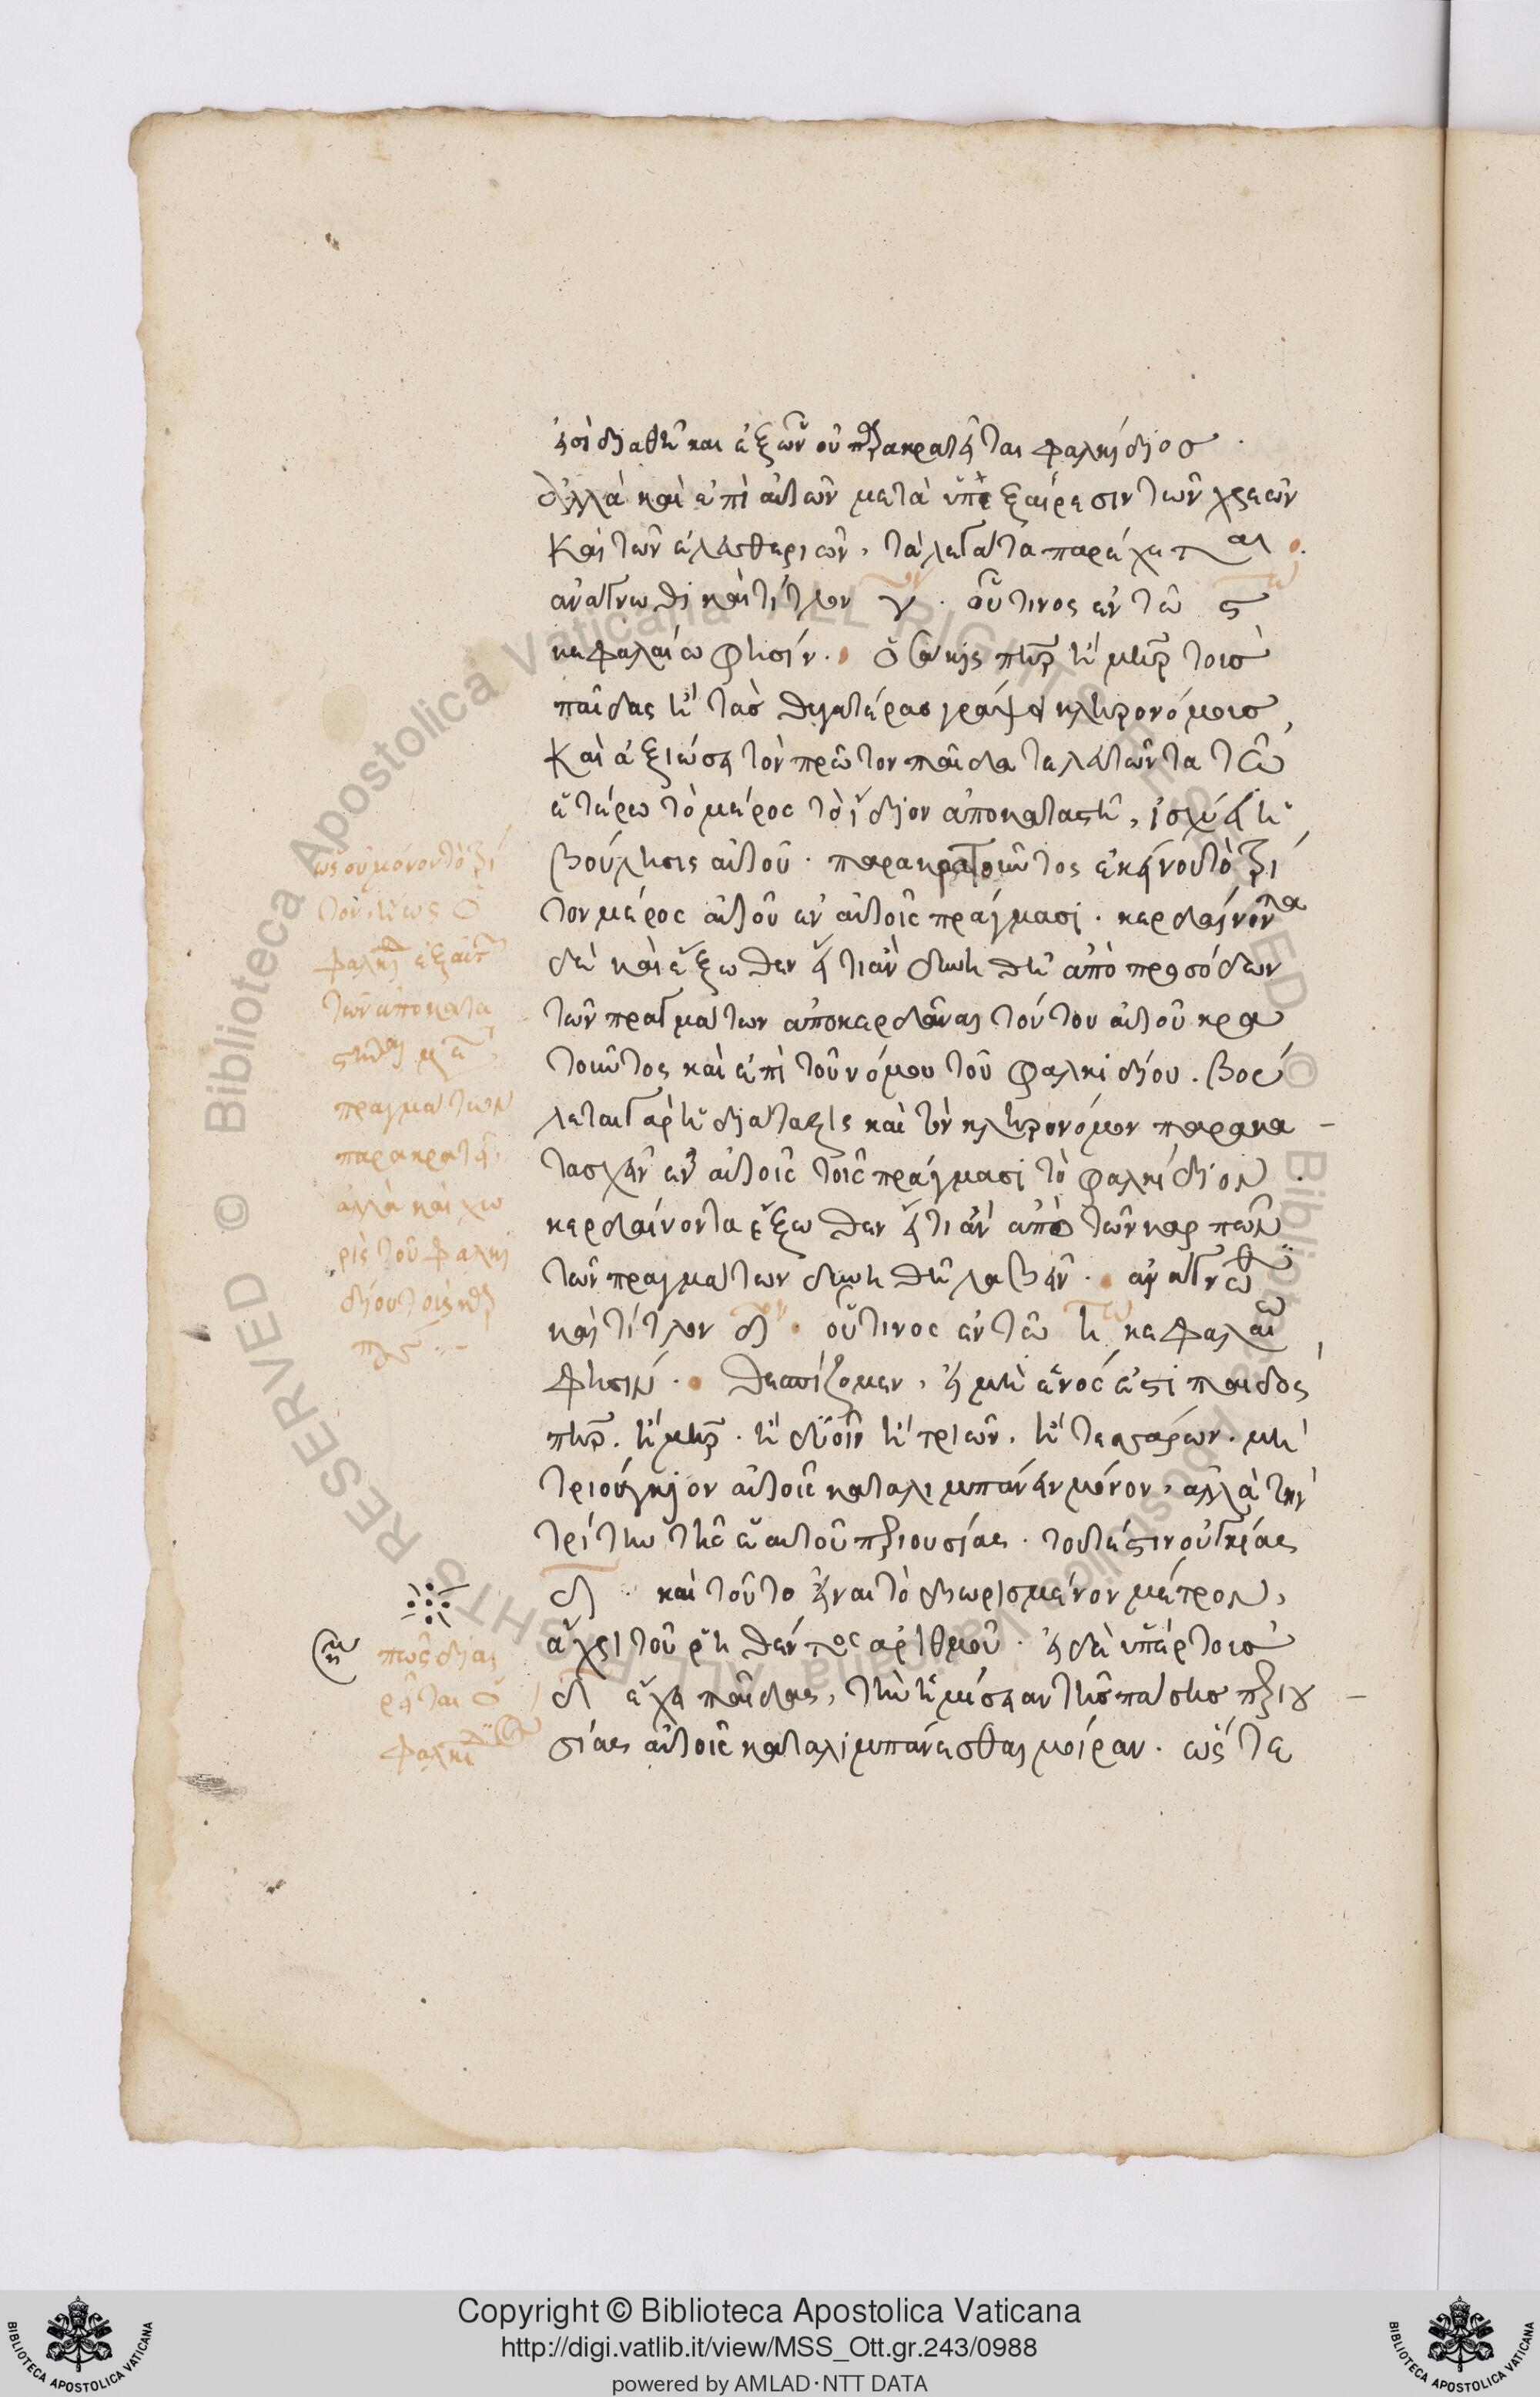 εἰσὶ διαθῆκαι ἐξ ὧν οὐ παρακρατεῖται φαλκίδιος ·
ἀλλὰ καὶ ἐπὶ αὐτῶν μετὰ ὑπεξαίρεσιν τῶν χρεῶν
καὶ τῶν ἐλευθεριῶν, τὰ λεγάτα παρέχεται
ἀνάγνωθι καὶ τίτλον γ · οὗτινος ἐν τῶ ς
κεφαλαίω φησίν · ὁσάκις πηρ ἢ μηρ τοὺς
παῖδας ἢ τὰς θυγατέρας γράψει κληρονόμους,
καὶ ἀξιώσει τὸν πρῶτον παῖδα τελευτῶντα τῶ
ἑτέρω τὸ μέρος τὸ ἴδιον ἀποκαταστῆ, ἰσχύει ἡ
βούλησις αὐτοῦ · παρακρατοῦντος ἐκείνου τὸ τρί
τον μέρος αὐτοῦ ἐν αὐτοῖς πράγμασι · κερδαίνοντα
δὲ καὶ ἔξωθεν εἴ τι ἂν δυνηθῆ ἀπὸ προσόδων
τῶν πραγμάτων ἀποκερδᾶναι τούτου αὐτοῦ κρα
τοῦντος καὶ ἐπὶ τοῦ νόμου τοῦ φαλκιδίου. βού
λεται γὰρ ἡ διάταξις καὶ τὸν κληρονόμον παρακα-
τασχεῖν ἐν αὐτοῖς τοῖς πράγμασι τὸ φαλκίδιον ·
κερδαίνοντα ἔξωθεν εἴ τι ἂν ἀπὸ τῶν καρπῶν
τῶν πραγμάτων δυνηθῆ λαβεῖν · ἀνάγνωθι
καὶ τίτλον δ · οὗτινος ἐν τῶ η κεφαλαίω
φησίν · θεσπίζομεν, εἰ μὲν ἑνός ἐστι παιδὸς
πηρ. ἢ μηρ · ἢ δυοῖν ἢ τριῶν. ἢ τεσσάρων. μὴ
τριούγκιον αὐτοῖς καταλιμπάνειν μόνον, ἀλλὰ τὴν
τρίτην τῆς ἑαυτοῦ περιουσίας · τουτέστιν οὐγκίας
δ · καὶ τοῦτο εἶναι τὸ διωρισμένον μέτρον,
ἄχρι τοῦ ῥηθέντος ἀριθμοῦ · εἰ δὲ ὑπὲρ τοὺς
δ ἔχει παῖδας, τὴν ἡμίσειαν τῆς πάσης περιου-
σίας αὐτοῖς καταλιμπάνεσθαι μοῖραν · ὥστε
ὡς οὐ μόνον τὸ τρί
τον, ἤως ὁ
τῶν ἀποκατα
πραγμάτων
παρακρατεῖ,
ἀλλὰ καὶ χω
ρὶς τοῦ φαλκι
πῶς διαι
ρεῖται ὁ
φαλκίδιος
© Biblioteca Apostolica Vaticana ALL RIGHTS RESERVED
Copyright © Biblioteca Apostolica Vaticana
http://digi.vatlib.it/view/MSS_Ott.gr.243/0988
powered by AMLAD·NTT DATA
BIBLIOTECA APOSTOLICA VATICANA
BIBLIOTECA APOSTOLICA VATICANA